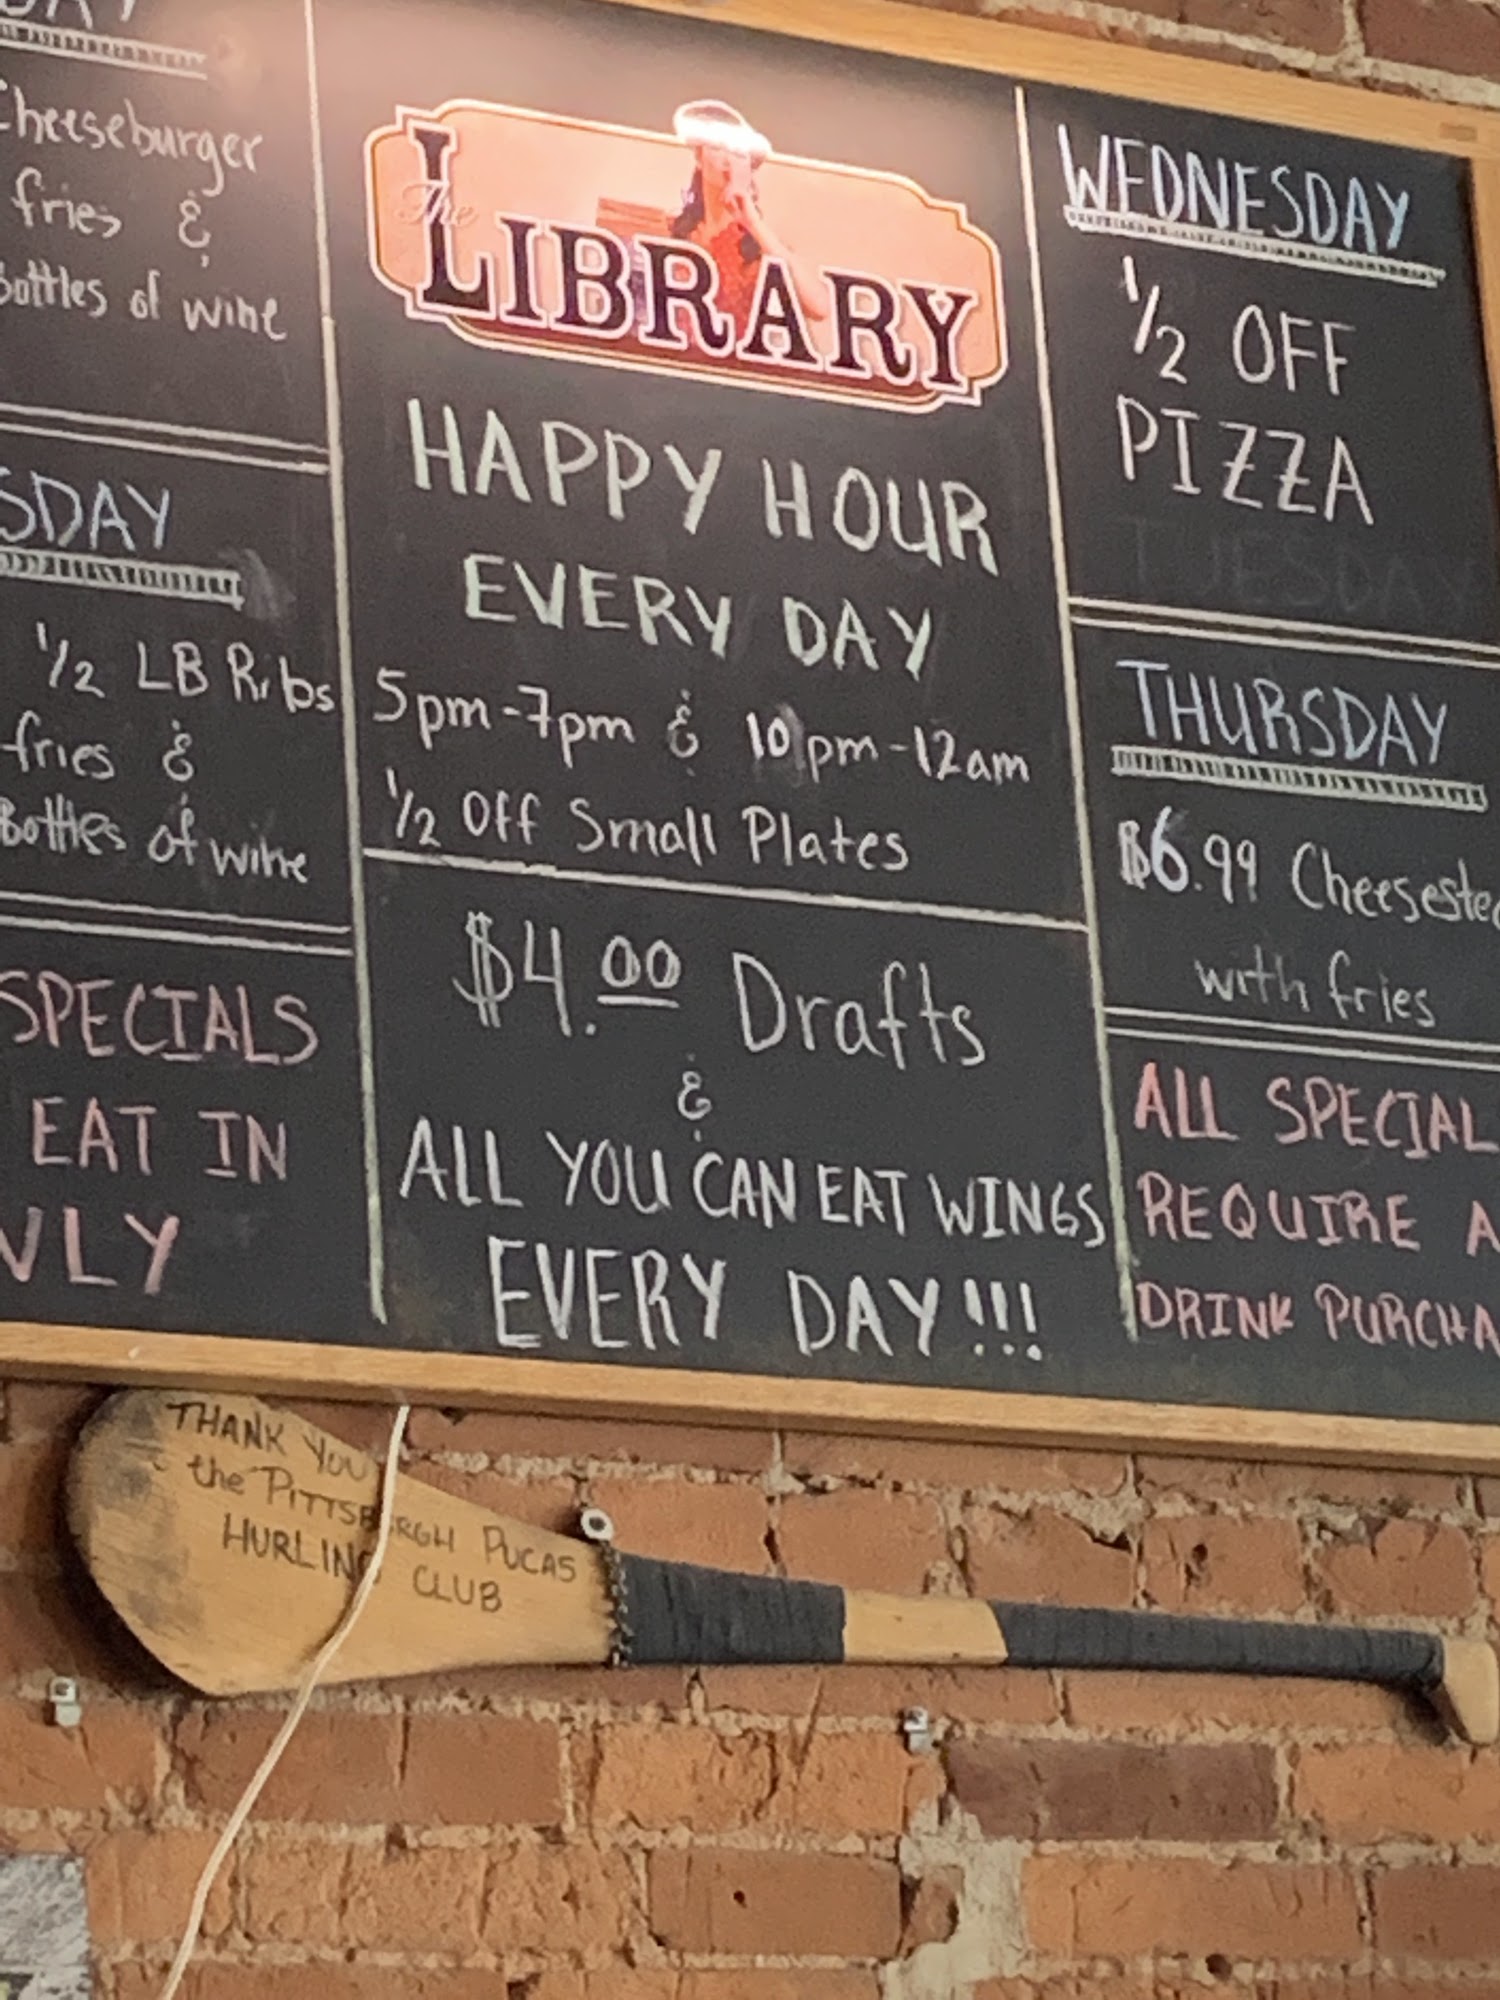 Cheeseburger
fries &
Bottles of wine
SDAY
1/2 LB Ribs
fries &
Bottles of wine
SPECIALS
EAT IN
NLY
The
LIBRARY
HAPPY HOUR
EVERY DAY
5pm-7pm & 10pm-12am
1/2 Off Small Plates
$4.00 Drafts
&
ALL YOU CAN EAT WINGS
EVERY DAY!!!
WEDNESDAY
1/2 OFF
PIZZA
TUESDAY
THURSDAY
$6.99 Cheesestea
with fries
ALL SPECIAL
REQUIRE A
DRINK PURCHA
THANK YOU
the PITTSBURGH PUCAS
HURLING CLUB